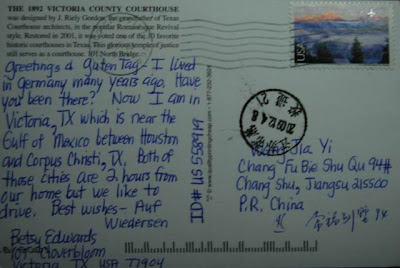 THE 1892 VICTORIA COUNTY COURTHOUSE
was designed by J. Riely Gordon, the grandfather of Texas
Courthouse architects, in the popular Romanesque Revival
style. Restored in 2001, it was voted one of the 10 favorite
historic courthouses in Texas. This glorious temple of justice
still serves as a courthouse. 101 North Bridge.
Greetings & Guten Tag - I lived
in Germany many years ago. Have
you been there? Now I am in
Victoria, TX which is near the
Gulf of Mexico between Houston
and Corpus Christi, TX. Both of
those cities are 2 hours from
our home but we like to
drive. Best wishes - Auf
Wiedersen
Betsy Edwards
Cloverbloom
Victoria, TX USA 77904
ID# US 558919
USA
Jia Yi
Chang Fu Bie Shu Qu 94#
Chang Shu, Jiangsu 215500
P.R. China